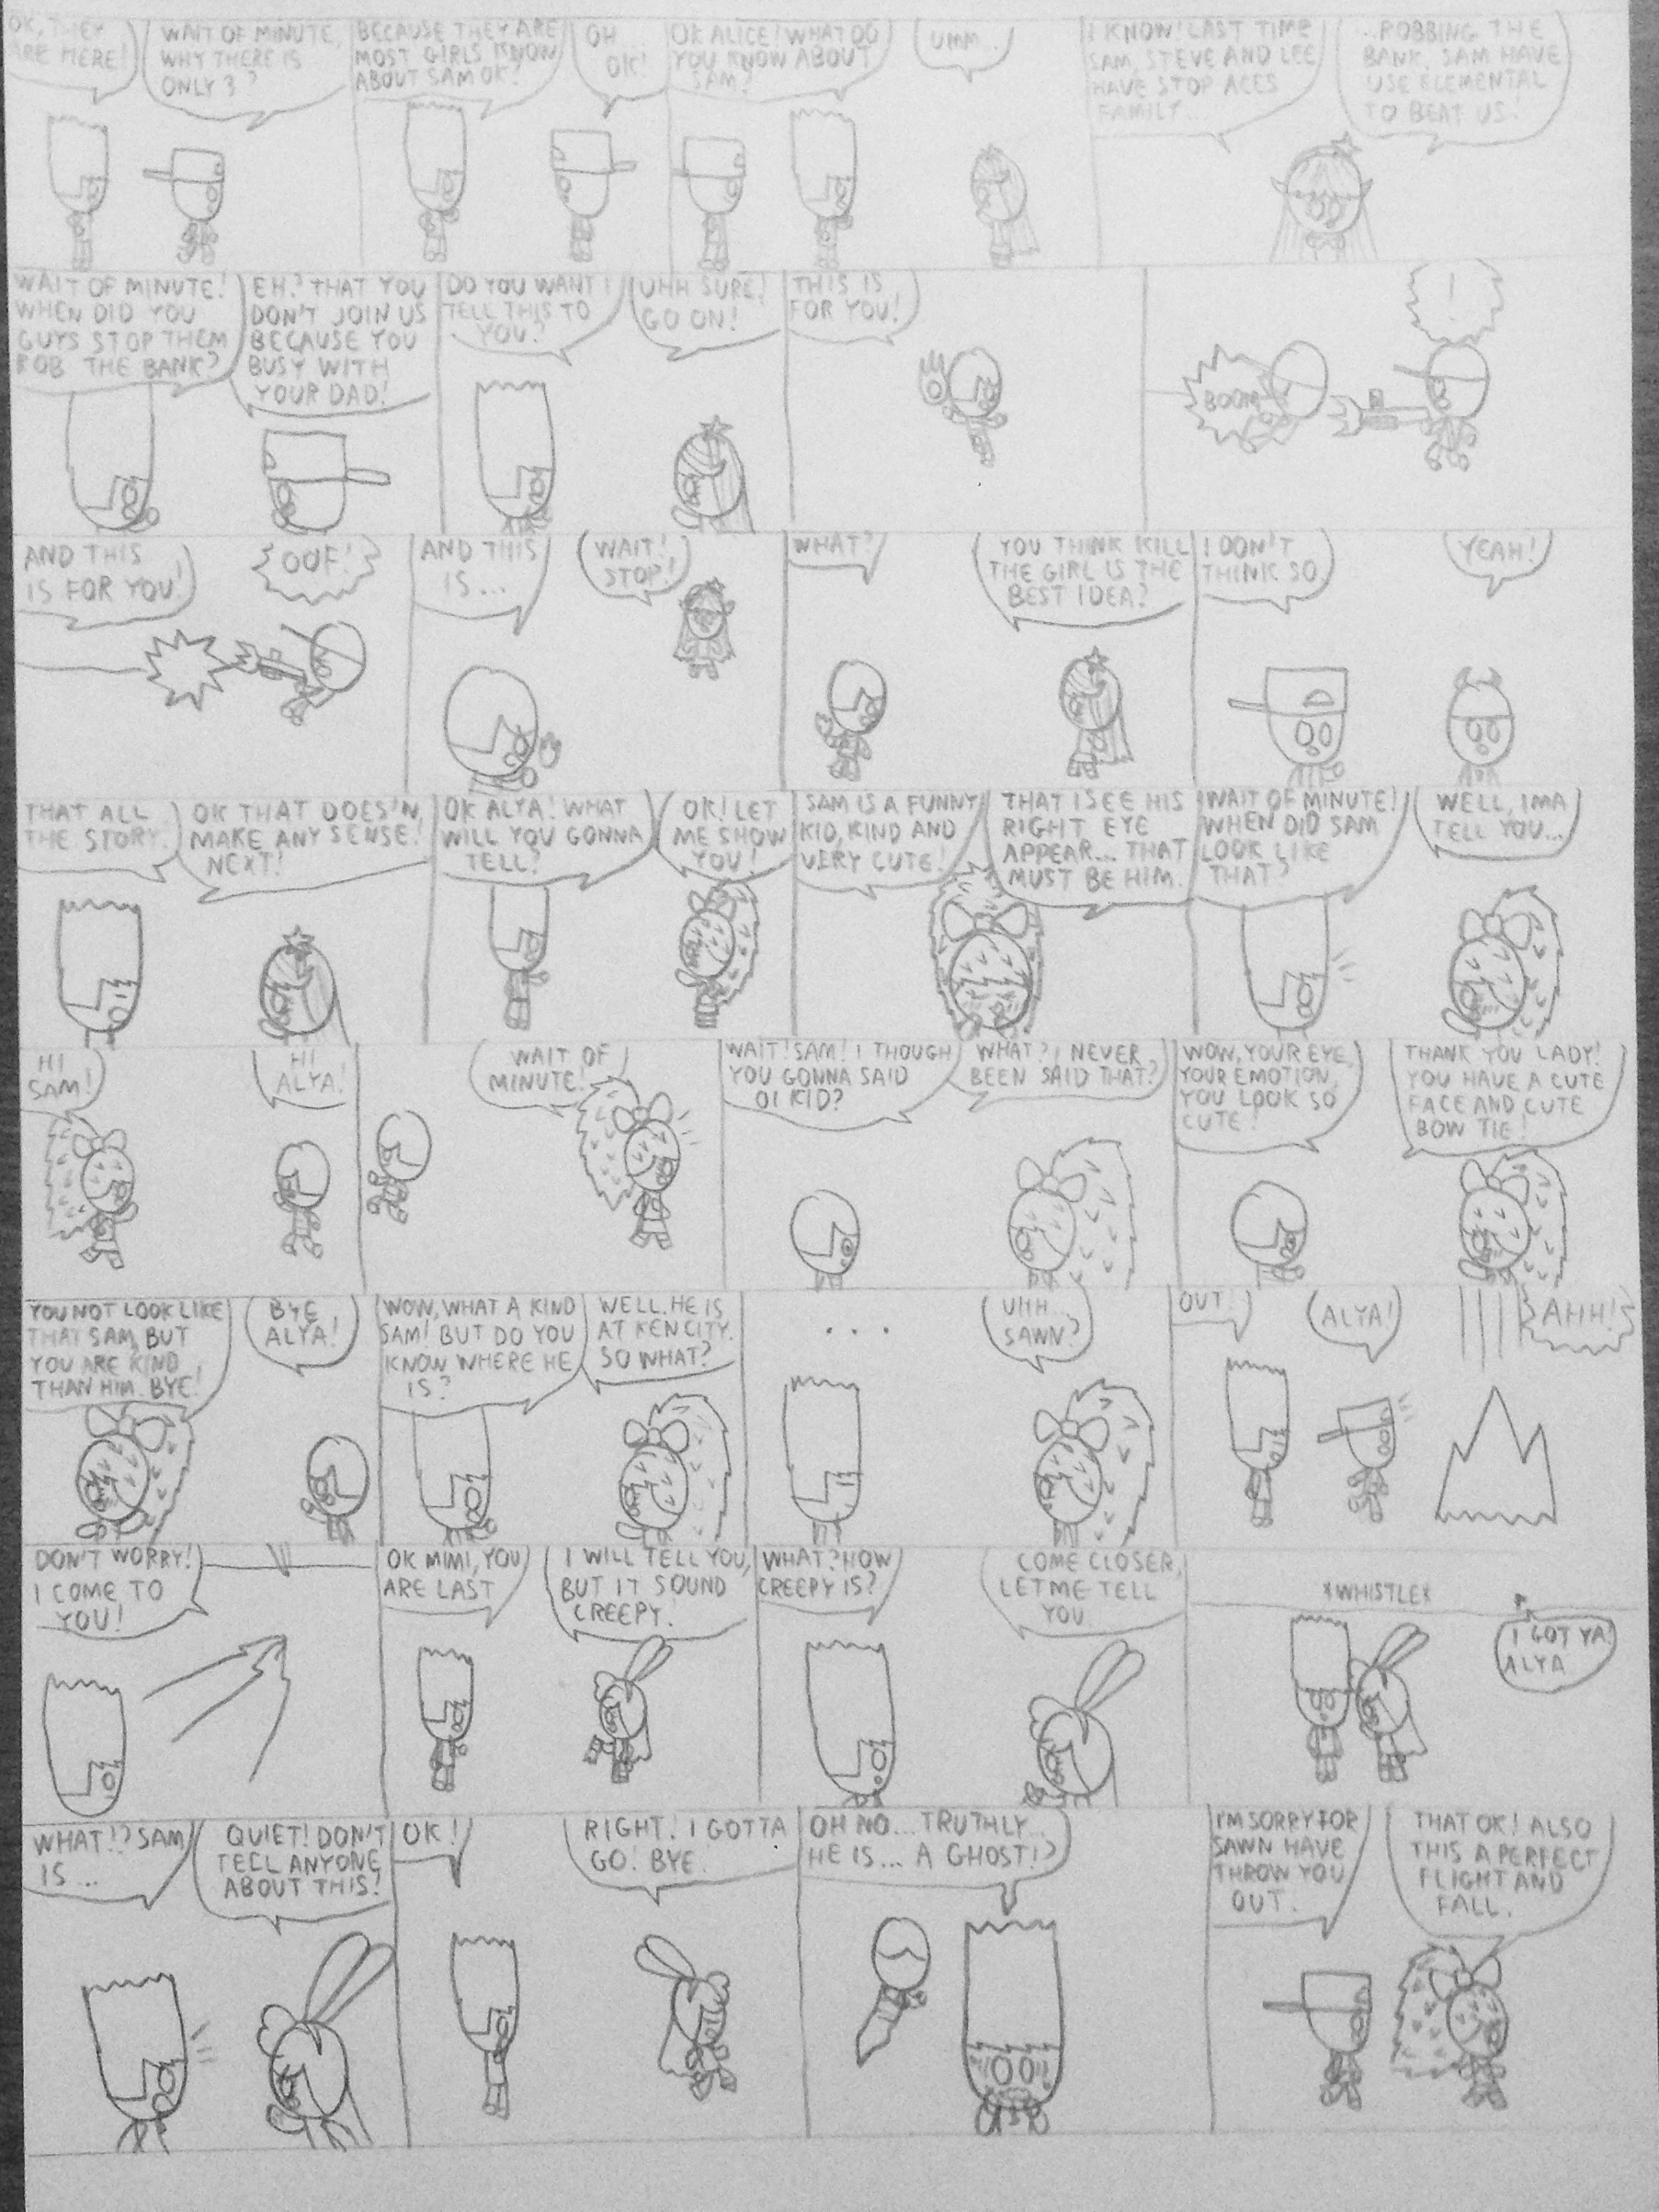 OK, THEY
ARE HERE!
WAIT OF MINUTE,
WHY THERE IS
ONLY 3?
BECAUSE THEY ARE
MOST GIRLS KNOW
ABOUT SAM OK!
OH
OK!
OK ALICE! WHAT DO
YOU KNOW ABOUT
SAM?
UMM...
I KNOW! LAST TIME
SAM, STEVE AND LEE
HAVE STOP ACES
FAMILY...
...ROBBING THE
BANK. SAM HAVE
USE ELEMENTAL
TO BEAT US!
WAIT OF MINUTE!
WHEN DID YOU
GUYS STOP THEM
ROB THE BANK?
EH? THAT YOU
DON'T JOIN US
BECAUSE YOU
BUSY WITH
YOUR DAD!
DO YOU WANT I
TELL THIS TO
YOU?
UHH SURE!
GO ON!
THIS IS
FOR YOU!
!
BOOM
AND THIS
IS FOR YOU!
OOF!
AND THIS
IS...
WAIT!
STOP!
WHAT?
YOU THINK KILL
THE GIRL IS THE
BEST IDEA?
I DON'T
THINK SO.
YEAH!
THAT ALL
THE STORY.
OK THAT DOES'N
MAKE ANY SENSE!
NEXT!
OK ALYA! WHAT
WILL YOU GONNA
TELL?
OK! LET
ME SHOW
YOU!
SAM IS A FUNNY
KID, KIND AND
VERY CUTE!
THAT I SEE HIS
RIGHT EYE
APPEAR... THAT
MUST BE HIM.
WAIT OF MINUTE!
WHEN DID SAM
LOOK LIKE
THAT?
WELL, IMA
TELL YOU...
HI
SAM!
HI
ALYA!
WAIT OF
MINUTE!
WAIT! SAM! I THOUGH
YOU GONNA SAID
OI KID?
WHAT? I NEVER
BEEN SAID THAT?
WOW, YOUR EYE,
YOUR EMOTION,
YOU LOOK SO
CUTE!
THANK YOU LADY!
YOU HAVE A CUTE
FACE AND CUTE
BOW TIE!
YOU NOT LOOK LIKE
THAT SAM, BUT
YOU ARE KIND
THAN HIM. BYE!
BYE
ALYA!
WOW, WHAT A KIND
SAM! BUT DO YOU
KNOW WHERE HE
IS?
WELL. HE IS
AT KEN CITY.
SO WHAT?
...
UHH...
SAWN?
OUT!
ALYA!
AHH!
DON'T WORRY!
I COME TO
YOU!
OK MIMI, YOU
ARE LAST
I WILL TELL YOU,
BUT IT SOUND
CREEPY!
WHAT? HOW
CREEPY IS?
COME CLOSER,
LET ME TELL
YOU.
*WHISTLE*
I GOT YA!
ALYA
WHAT!? SAM
IS...
QUIET! DON'T
TELL ANYONE
ABOUT THIS!
OK!
RIGHT! I GOTTA
GO! BYE.
OH NO... TRUTHLY...
HE IS... A GHOST!?
I'M SORRY FOR
SAWN HAVE
THROW YOU
OUT.
THAT OK! ALSO
THIS A PERFECT
FLIGHT AND
FALL.